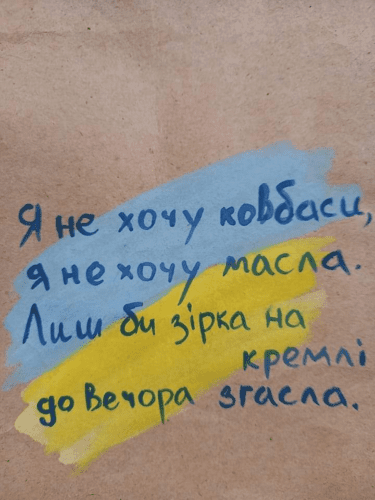 Я не хочу ковбаси,
я не хочу масла.
Лиш би зірка на
кремлі
до вечора згасла.